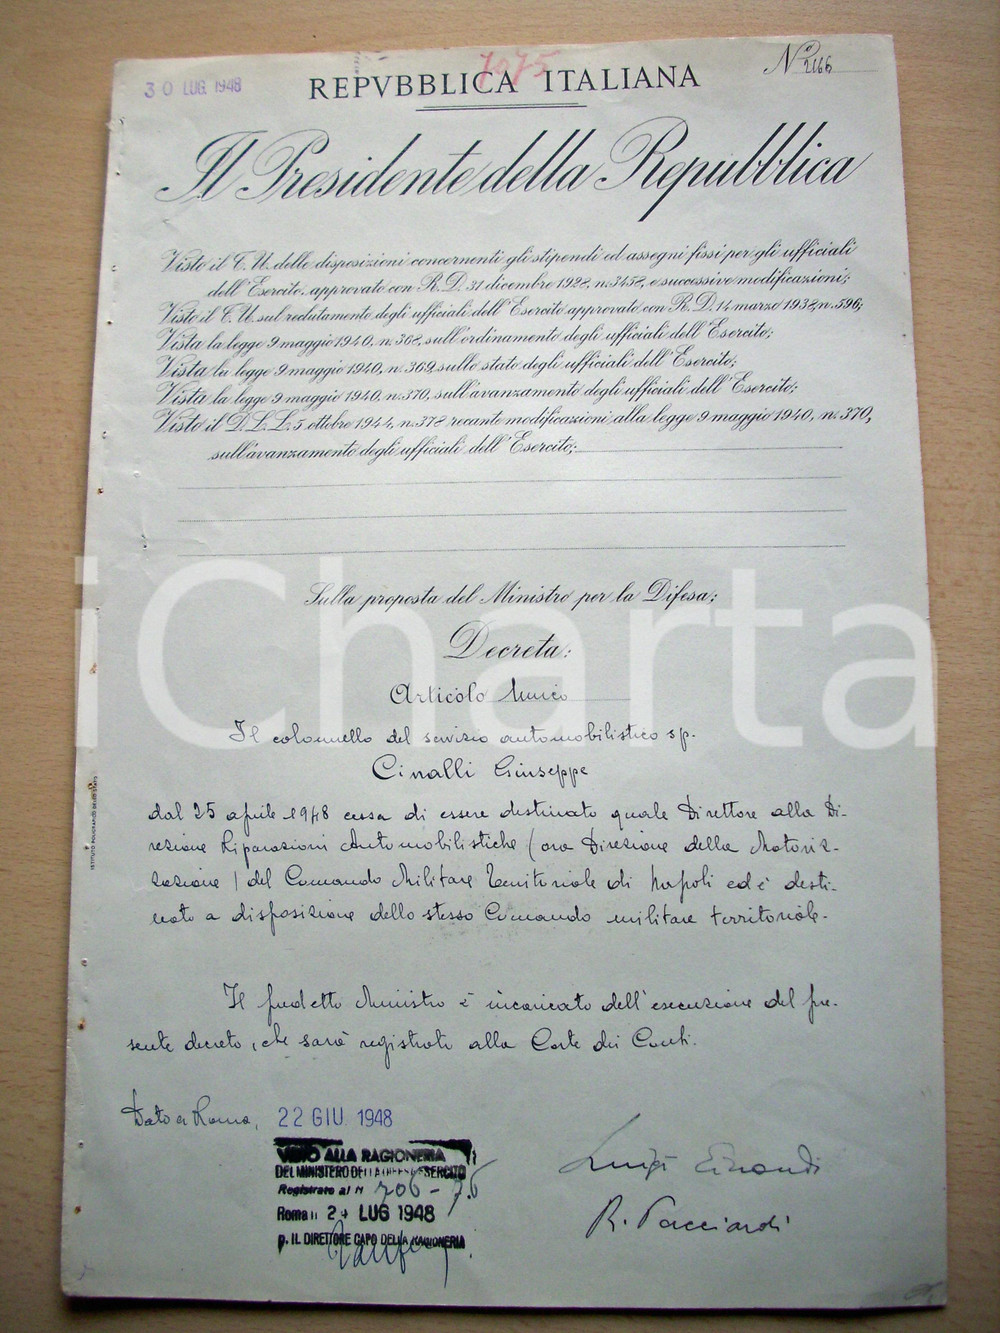 30 LUG. 1948
7075
N° 2166
REPVBBLICA ITALIANA
Il Presidente della Repubblica
Visto il T. U. delle disposizioni concernenti gli stipendi ed assegni fissi per gli ufficiali
dell'Esercito, approvato con R. D. 31 dicembre 1928, n. 3458, e successive modificazioni;
Visto il T. U. sul reclutamento degli ufficiali dell'Esercito approvato con R. D. 14 marzo 1938, n. 596;
Vista la legge 9 maggio 1940, n. 368, sull'ordinamento degli ufficiali dell'Esercito;
Vista la legge 9 maggio 1940, n. 369, sullo stato degli ufficiali dell'Esercito;
Vista la legge 9 maggio 1940, n. 370, sull'avanzamento degli ufficiali dell'Esercito;
Visto il D. L. L. 5 ottobre 1944, n. 378 recante modificazioni alla legge 9 maggio 1940, n. 370,
sull'avanzamento degli ufficiali dell'Esercito;
Sulla proposta del Ministro per la Difesa;
Decreta:
Articolo Unico
Il colonnello del servizio automobilistico sp.
Cinalli Giuseppe
dal 25 aprile 1948 cessa di essere destinato quale Direttore alla Di-
rezione Riparazioni Automobilistiche (ora Direzione della Motoriz-
zazione) del Comando Militare Territoriale di Napoli ed è desti-
nato a disposizione dello stesso Comando militare territoriale.
Il predetto Ministro è incaricato dell'esecuzione del pre-
sente decreto, che sarà registrato alla Corte dei Conti.
Dato a Roma, 22 GIU. 1948
VISTO ALLA RAGIONERIA
DEL MINISTERO DELLA DIFESA ESERCITO
Registrato al N 706-76
Roma li 24 LUG 1948
p. IL DIRETTORE CAPO DELLA RAGIONERIA
Luigi Einaudi
R. Pacciardi
ISTITUTO POLIGRAFICO DELLO STATO
iCharta